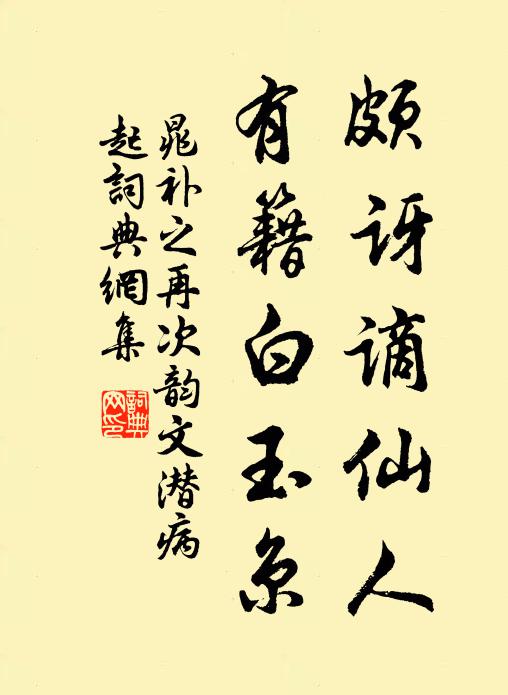 颇讶谪仙人
有籍白玉京
晁补之再次韵文潜病
起詞典網集
詞典网印